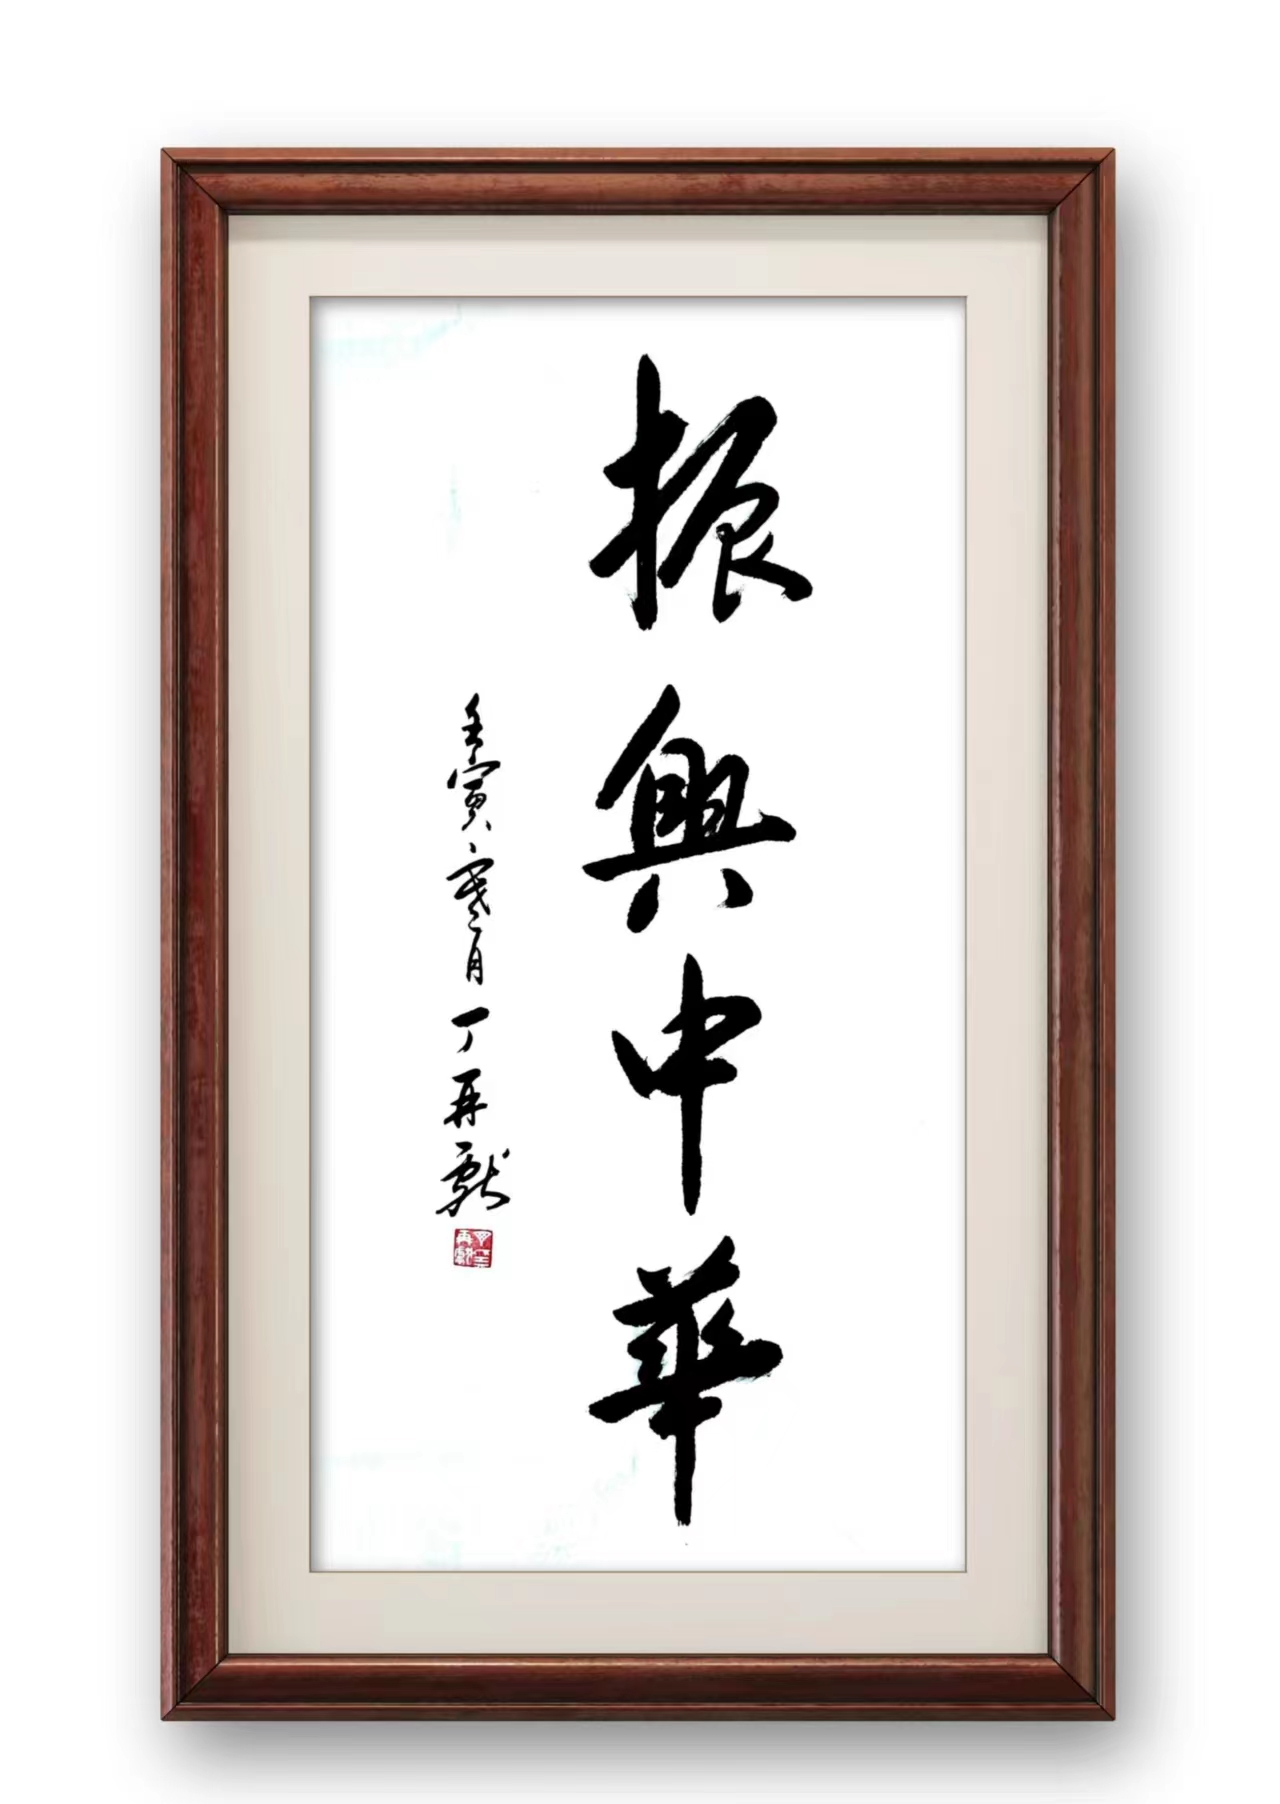 振興中華
壬寅月丁再獻